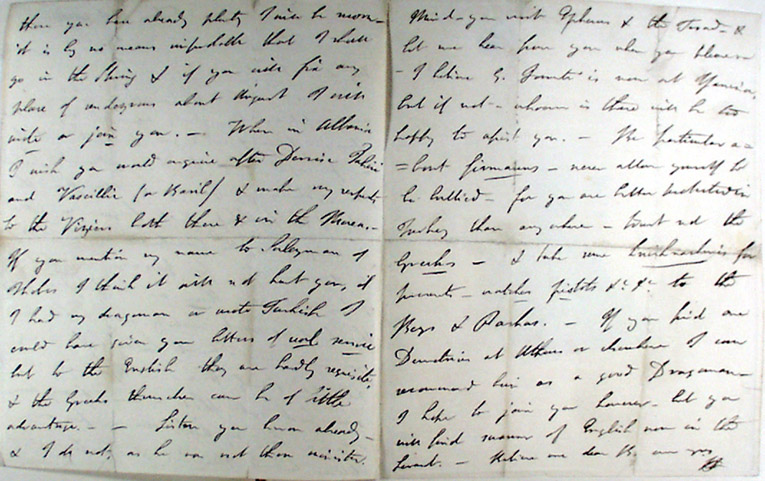 there you have already plenty I will be more
it is by no means improbable that I shall
go in the Spring & if you will fix any
place of rendezvous about August I will
write or join you. — When in Albania
I wish you would inquire after Dervise Tahiri
and Vascillie (or Basil) & make my respects
to the Viziers both there & in the Morea. —
If you mention my name to Suleyman of
Thebes I think it will not hurt you, if
I had my dragoman or wrote Turkish I
could have given you letters of real service
but to the English they are hardly requisite,
& the Greeks themselves can be of little
advantage. — — Liston you know already —
& I do not, as he was not then minister.
Mind you visit Ephesus & the Troad — &
let me hear from you when you please
— I believe G. Foresti is now at Yanina,
but if not — whoever is there will be too
happy to assist you. — Be particular a=
=bout firmauns — never allow yourself to
be bullied — for you are better protected in
Turkey than any where — trust not the
Greeks — & take some knicknackeries for
presents — watches pistols &c. &c. to the
Beys & Pachas. — If you find one
Demetrius at Athens or elsewhere I can
recommend him as a good Dragoman —
I hope to join you however — but you
will find swarms of English now in the
Levant. — Believe me dear